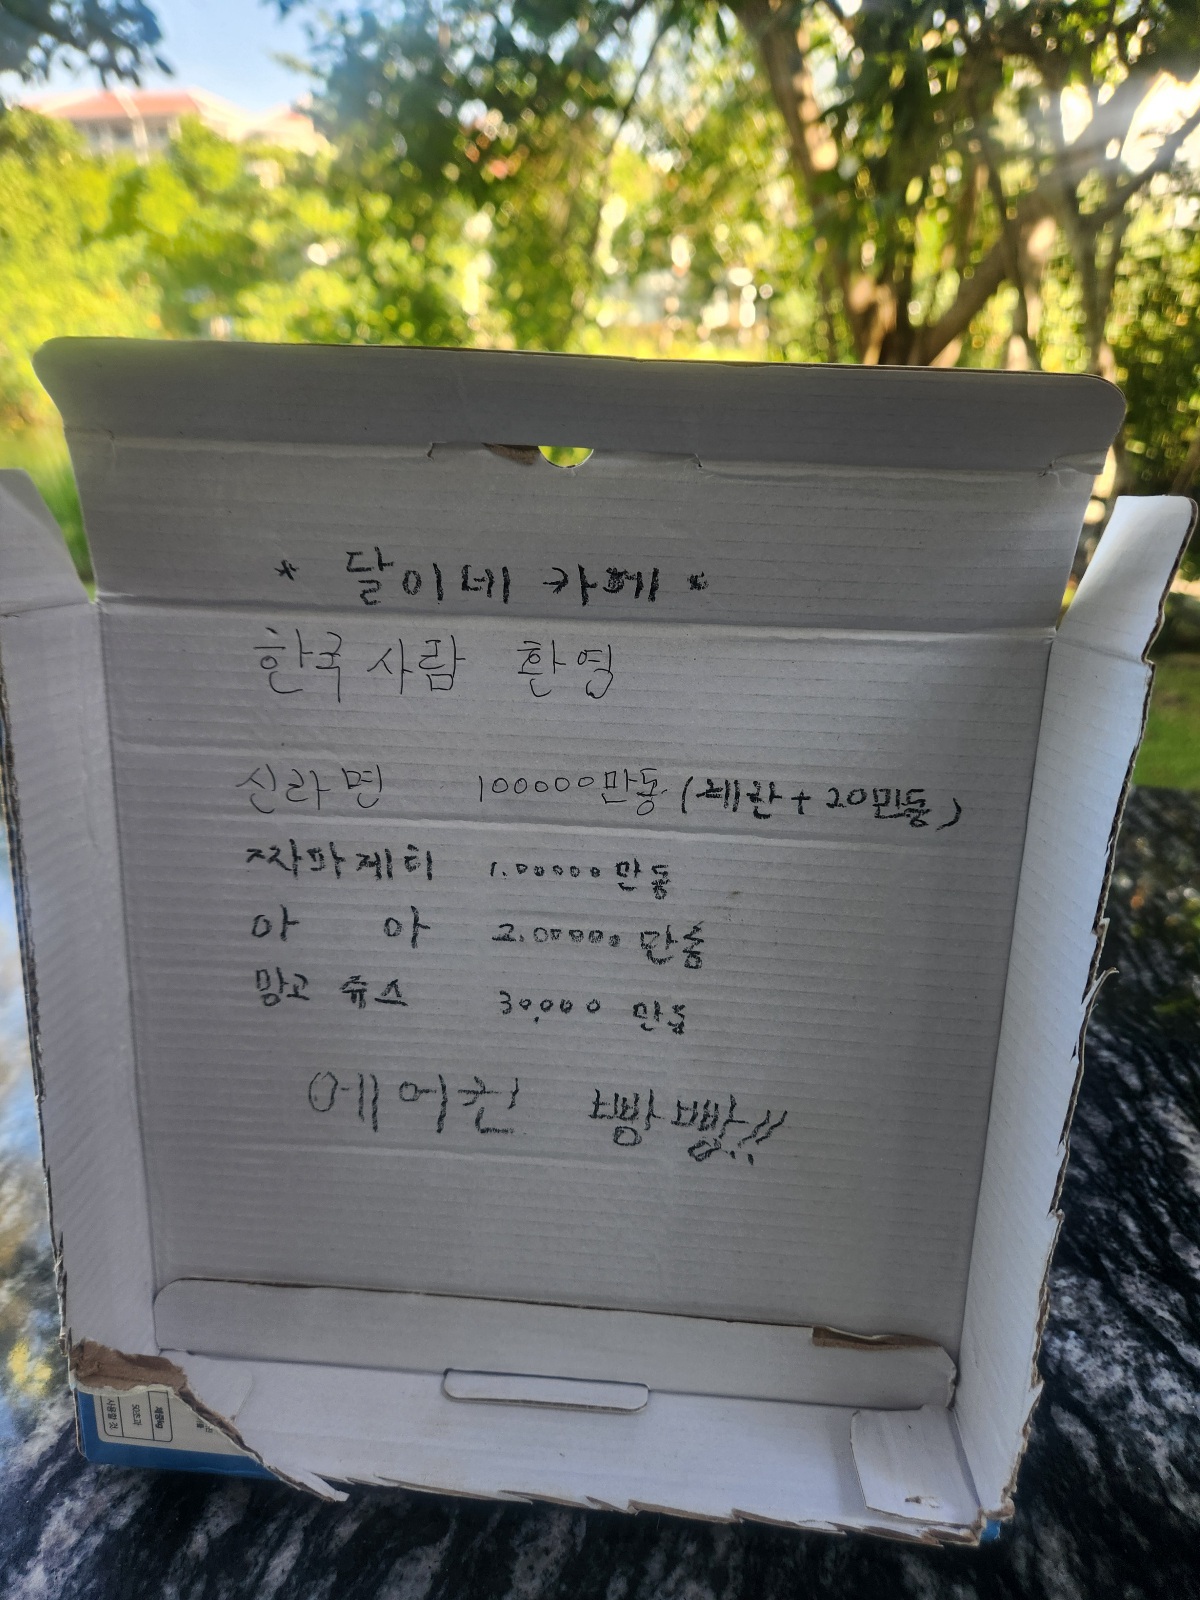 * 달이네 카페 *
한국 사람 환영
신라면 100000만동 (계란 + 20만동)
짜파게티 1.00000만동
아 아 2.00000 만동
망고 쥬스 30,000 만동
에어컨 빵빵!!